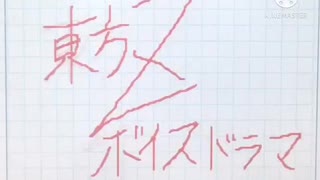 KINEMASTER
東方×
ボイスドラマ